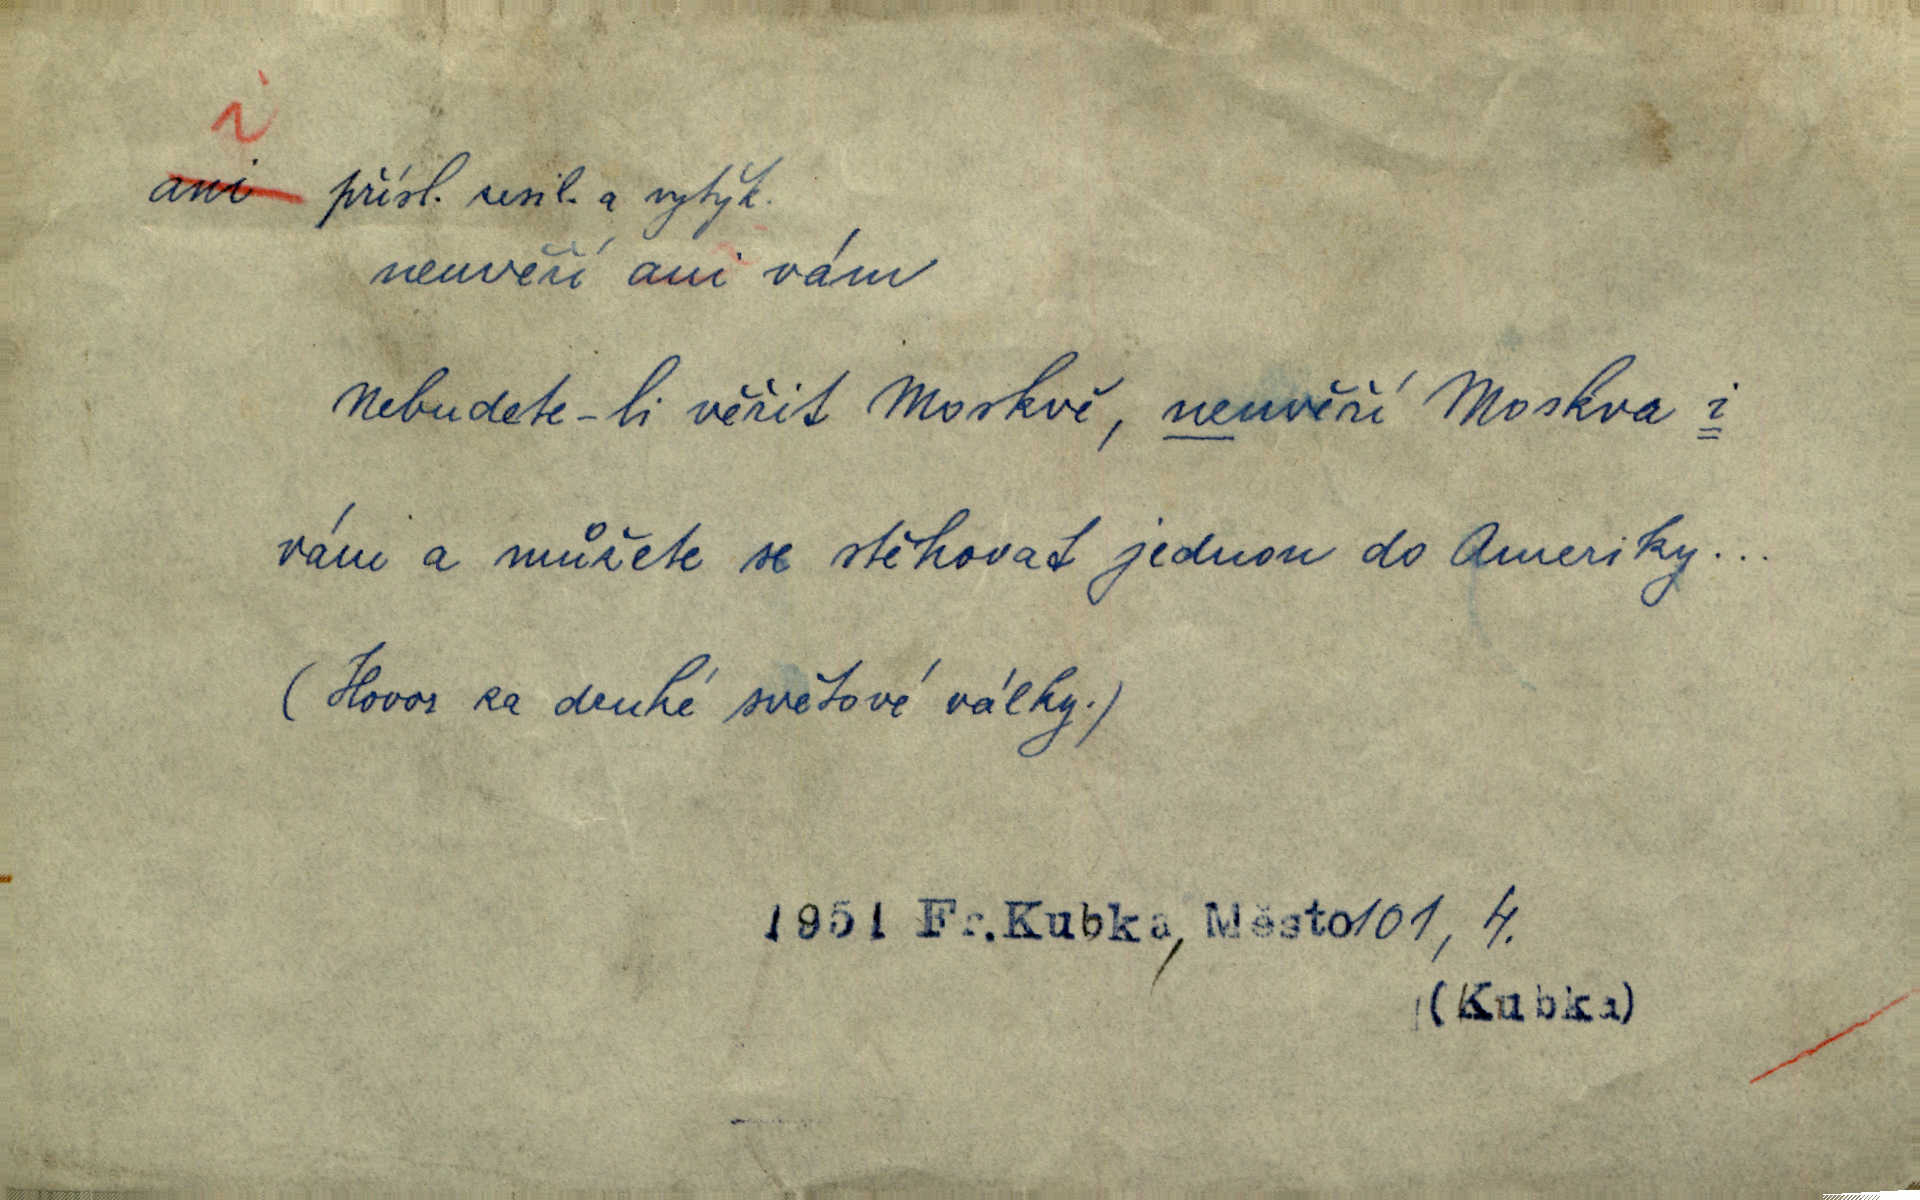 i
ani přísl. zesil. a vytýk.
neuvěří ani vám
Nebudete-li věřit Moskvě, neuvěří Moskva i
vám a můžete se stěhovat jednou do Ameriky...
(Hovor za druhé světové války.)
1951 Fr. Kubka, Město 101, 4.
(Kubka)